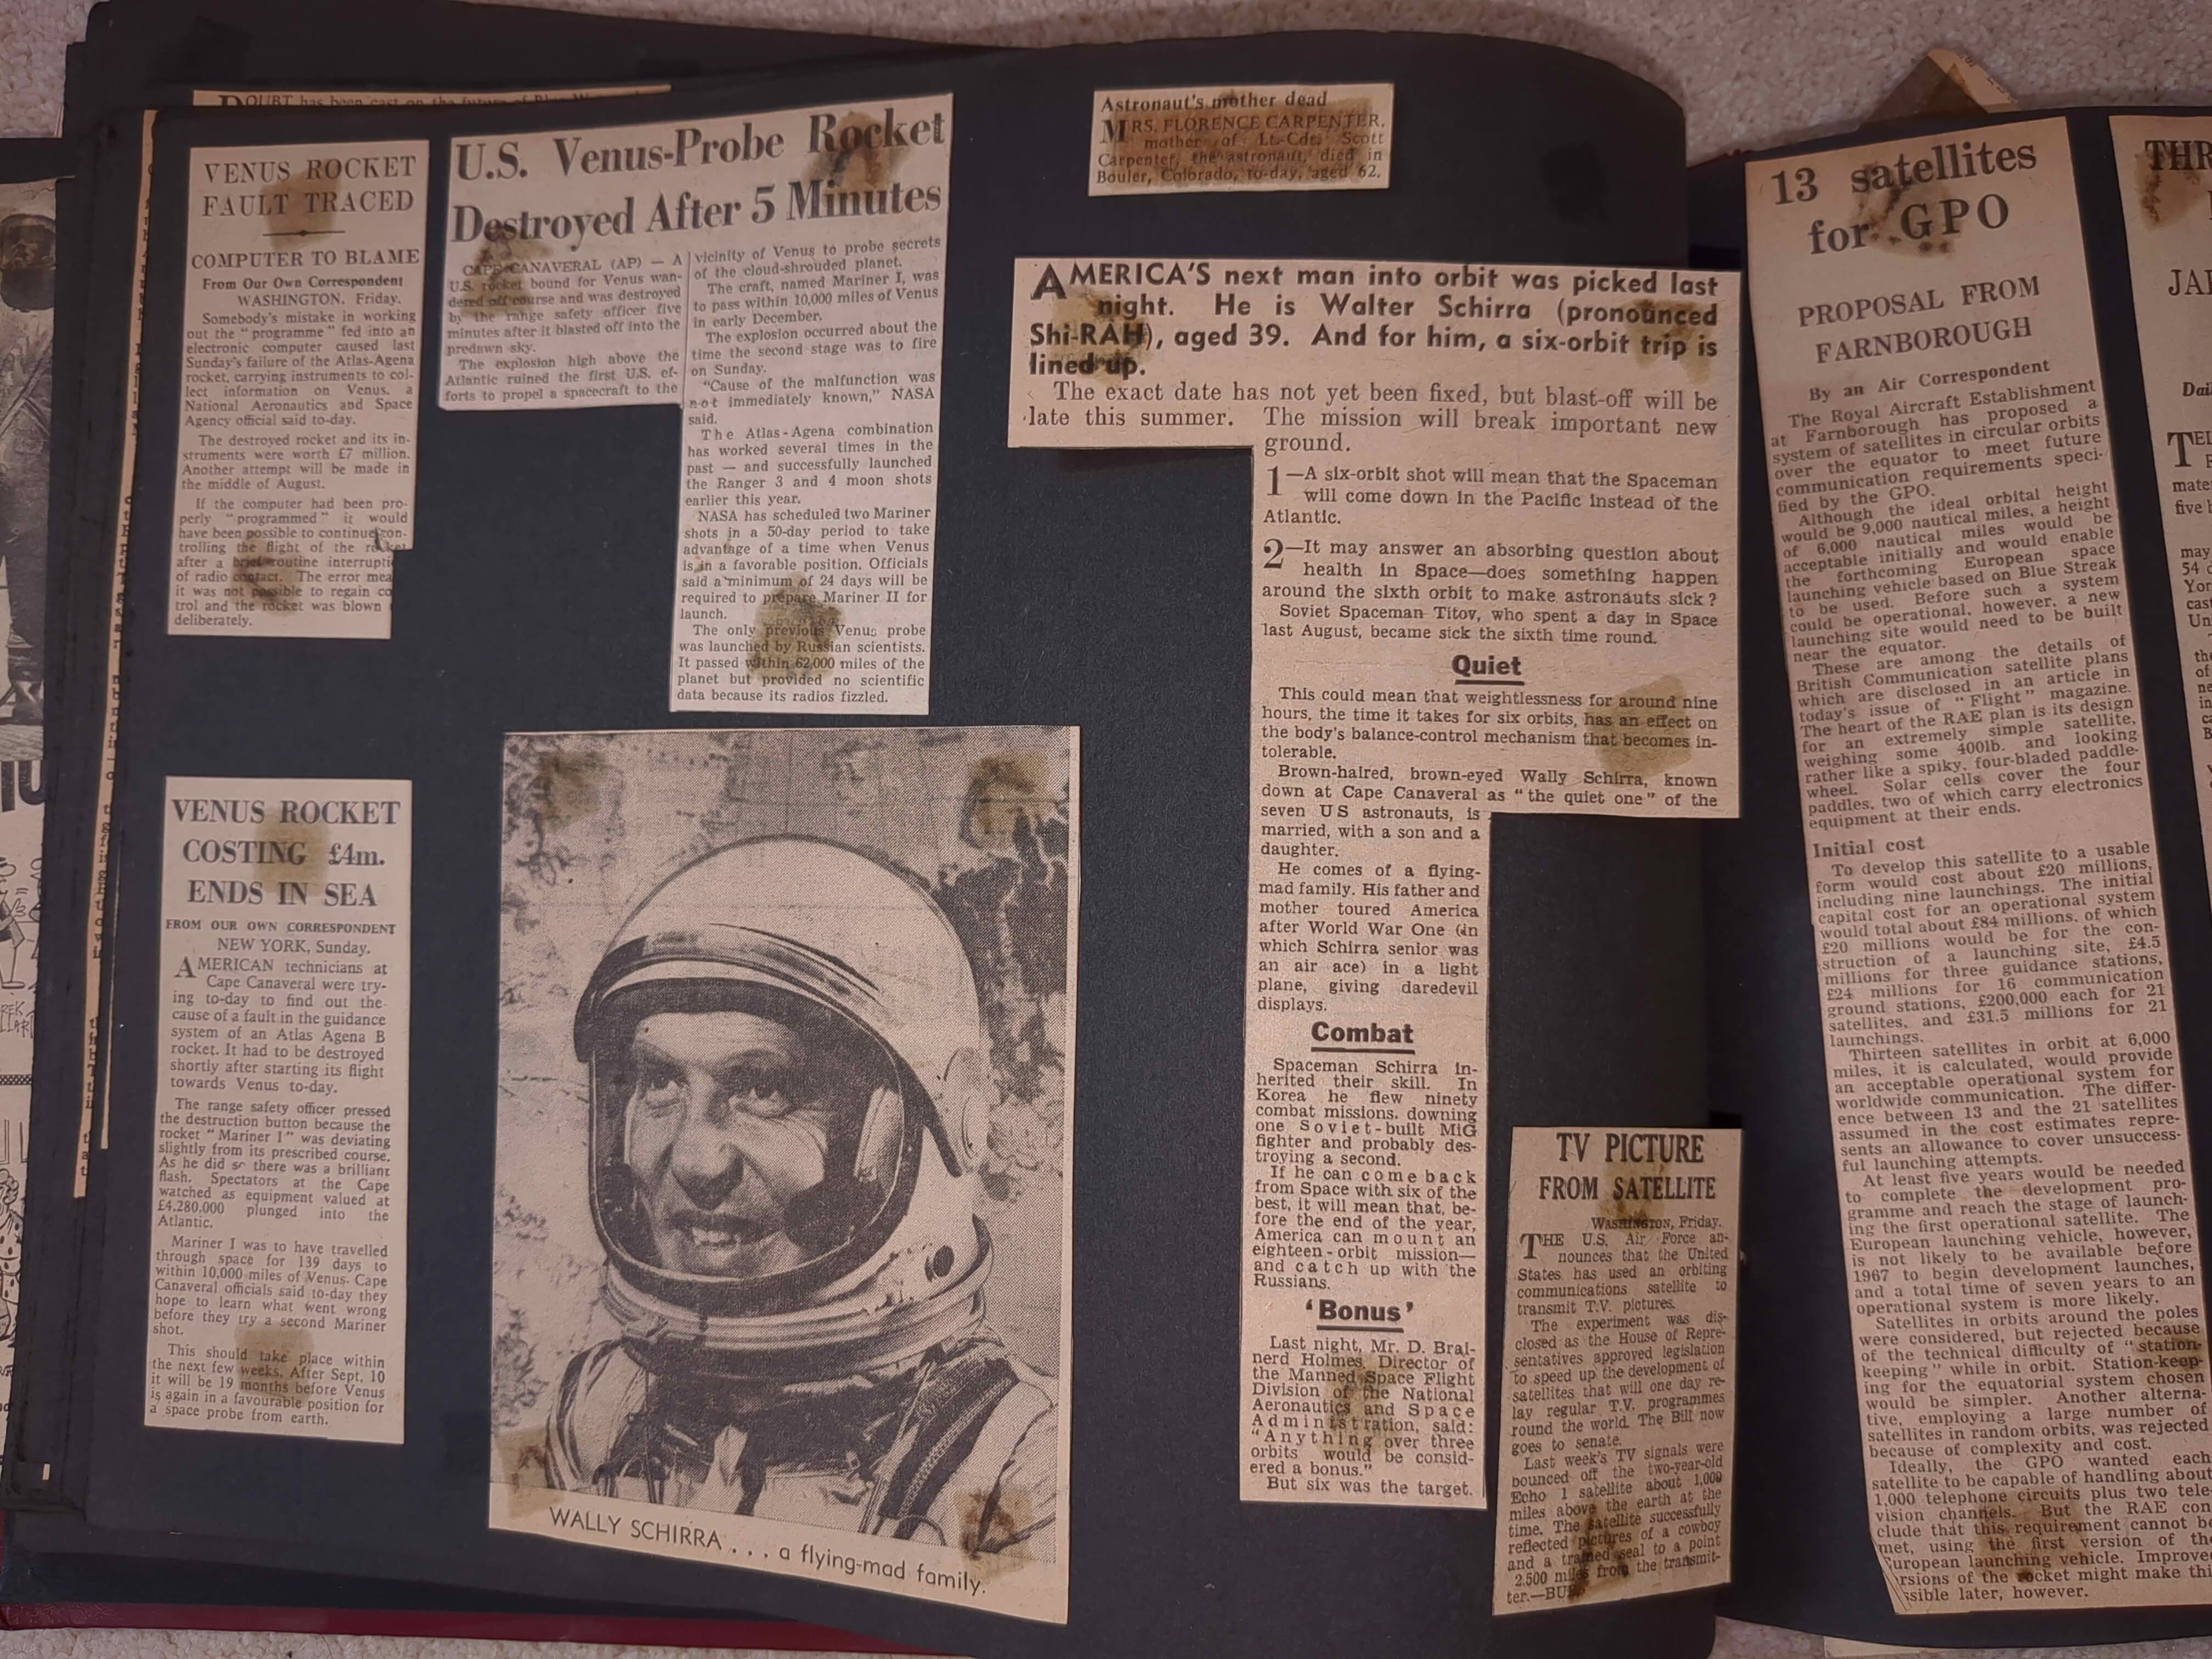 DOUBT has been cast on the future of
VENUS ROCKET
FAULT TRACED
COMPUTER TO BLAME
From Our Own Correspondent
WASHINGTON, Friday.
Somebody's mistake in working
out the "programme" fed into an
electronic computer caused last
Sunday's failure of the Atlas-Agena
rocket, carrying instruments to col-
lect information on Venus, a
National Aeronautics and Space
Agency official said to-day.
The destroyed rocket and its in-
struments were worth £7 million.
Another attempt will be made in
the middle of August.
If the computer had been pro-
perly "programmed" it would
have been possible to continue con-
trolling the flight of the rocket
after a brief routine interrupti
of radio contact. The error mea
it was not possible to regain co
trol and the rocket was blown
deliberately.
VENUS ROCKET
COSTING £4m.
ENDS IN SEA
FROM OUR OWN CORRESPONDENT
NEW YORK, Sunday.
AMERICAN technicians at
Cape Canaveral were try-
ing to-day to find out the
cause of a fault in the guidance
system of an Atlas Agena B
rocket. It had to be destroyed
shortly after starting its flight
towards Venus to-day.
The range safety officer pressed
the destruction button because the
rocket "Mariner I" was deviating
slightly from its prescribed course.
As he did so there was a brilliant
flash. Spectators at the Cape
watched as equipment valued at
£4,280,000 plunged into the
Atlantic.
Mariner I was to have travelled
through space for 139 days to
within 10,000 miles of Venus. Cape
Canaveral officials said to-day they
hope to learn what went wrong
before they try a second Mariner
shot.
This should take place within
the next few weeks. After Sept. 10
it will be 19 months before Venus
is again in a favourable position for
a space probe from earth.
U.S. Venus-Probe Rocket
Destroyed After 5 Minutes
CAPE CANAVERAL (AP) — A
U.S. rocket bound for Venus wan-
dered off course and was destroyed
by the range safety officer five
minutes after it blasted off into the
predawn sky.
The explosion high above the
Atlantic ruined the first U.S. ef-
forts to propel a spacecraft to the
vicinity of Venus to probe secrets
of the cloud-shrouded planet.
The craft, named Mariner I, was
to pass within 10,000 miles of Venus
in early December.
The explosion occurred about the
time the second stage was to fire
on Sunday.
"Cause of the malfunction was
not immediately known," NASA
said.
The Atlas-Agena combination
has worked several times in the
past — and successfully launched
the Ranger 3 and 4 moon shots
earlier this year.
NASA has scheduled two Mariner
shots in a 50-day period to take
advantage of a time when Venus
is in a favorable position. Officials
said a minimum of 24 days will be
required to prepare Mariner II for
launch.
The only previous Venus probe
was launched by Russian scientists.
It passed within 62,000 miles of the
planet but provided no scientific
data because its radios fizzled.
WALLY SCHIRRA . . . a flying-mad family.
Astronaut's mother dead
MRS. FLORENCE CARPENTER,
mother of Lt.-Cdr. Scott
Carpenter, the astronaut, died in
Bouler, Colorado, to-day, aged 62.
AMERICA'S next man into orbit was picked last
night. He is Walter Schirra (pronounced
Shi-RAH), aged 39. And for him, a six-orbit trip is
lined up.
The exact date has not yet been fixed, but blast-off will be
late this summer. The mission will break important new
ground.
1—A six-orbit shot will mean that the Spaceman
will come down in the Pacific instead of the
Atlantic.
2—It may answer an absorbing question about
health in Space—does something happen
around the sixth orbit to make astronauts sick?
Soviet Spaceman Titov, who spent a day in Space
last August, became sick the sixth time round.
Quiet
This could mean that weightlessness for around nine
hours, the time it takes for six orbits, has an effect on
the body's balance-control mechanism that becomes in-
tolerable.
Brown-haired, brown-eyed Wally Schirra, known
down at Cape Canaveral as "the quiet one" of the
seven US astronauts, is
married, with a son and a
daughter.
He comes of a flying-
mad family. His father and
mother toured America
after World War One (in
which Schirra senior was
an air ace) in a light
plane, giving daredevil
displays.
Combat
Spaceman Schirra in-
herited their skill. In
Korea he flew ninety
combat missions, downing
one Soviet-built MiG
fighter and probably des-
troying a second.
If he can come back
from Space with six of the
best, it will mean that, be-
fore the end of the year,
America can mount an
eighteen-orbit mission—
and catch up with the
Russians.
'Bonus'
Last night, Mr. D. Brai-
nerd Holmes, Director of
the Manned Space Flight
Division of the National
Aeronautics and Space
Administration, said:
"Anything over three
orbits would be consid-
ered a bonus."
But six was the target.
TV PICTURE
FROM SATELLITE
WASHINGTON, Friday.
THE U.S. Air Force an-
nounces that the United
States has used an orbiting
communications satellite to
transmit T.V. pictures.
The experiment was dis-
closed as the House of Repre-
sentatives approved legislation
to speed up the development of
satellites that will one day re-
lay regular T.V. programmes
round the world. The Bill now
goes to senate.
Last week's TV signals were
bounced off the two-year-old
Echo 1 satellite about 1,000
miles above the earth at the
time. The satellite successfully
reflected pictures of a cowboy
and a trained seal to a point
2,500 miles from the transmit-
ter.—BU
13 satellites
for GPO
PROPOSAL FROM
FARNBOROUGH
By an Air Correspondent
The Royal Aircraft Establishment
at Farnborough has proposed a
system of satellites in circular orbits
over the equator to meet future
communication requirements speci-
fied by the GPO.
Although the ideal orbital height
would be 9,000 nautical miles, a height
of 6,000 nautical miles would be
acceptable initially and would enable
the forthcoming European space
launching vehicle based on Blue Streak
to be used. Before such a system
could be operational, however, a new
launching site would need to be built
near the equator.
These are among the details of
British Communication satellite plans
which are disclosed in an article in
today's issue of "Flight" magazine.
The heart of the RAE plan is its design
for an extremely simple satellite,
weighing some 400lb. and looking
rather like a spiky, four-bladed paddle-
wheel. Solar cells cover the four
paddles, two of which carry electronics
equipment at their ends.
Initial cost
To develop this satellite to a usable
form would cost about £20 millions,
including nine launchings. The initial
capital cost for an operational system
would total about £84 millions, of which
£20 millions would be for the con-
struction of a launching site, £4.5
millions for three guidance stations,
£24 millions for 16 communication
ground stations, £200,000 each for 21
satellites, and £31.5 millions for 21
launchings.
Thirteen satellites in orbit at 6,000
miles, it is calculated, would provide
an acceptable operational system for
worldwide communication. The differ-
ence between 13 and the 21 satellites
assumed in the cost estimates repre-
sents an allowance to cover unsuccess-
ful launching attempts.
At least five years would be needed
to complete the development pro-
gramme and reach the stage of launch-
ing the first operational satellite. The
European launching vehicle, however,
is not likely to be available before
1967 to begin development launches,
and a total time of seven years to an
operational system is more likely.
Satellites in orbits around the poles
were considered, but rejected because
of the technical difficulty of "station-
keeping" while in orbit. Station-keep-
ing for the equatorial system chosen
would be simpler. Another alterna-
tive, employing a large number of
satellites in random orbits, was rejected
because of complexity and cost.
Ideally, the GPO wanted each
satellite to be capable of handling about
1,000 telephone circuits plus two tele-
vision channels. But the RAE con
clude that this requirement cannot be
met, using the first version of the
European launching vehicle. Improve
rsions of the rocket might make thi
ssible later, however.
THR
JA
Dail
TEL
mate
five h
may
54 d
Yor
cas
Un